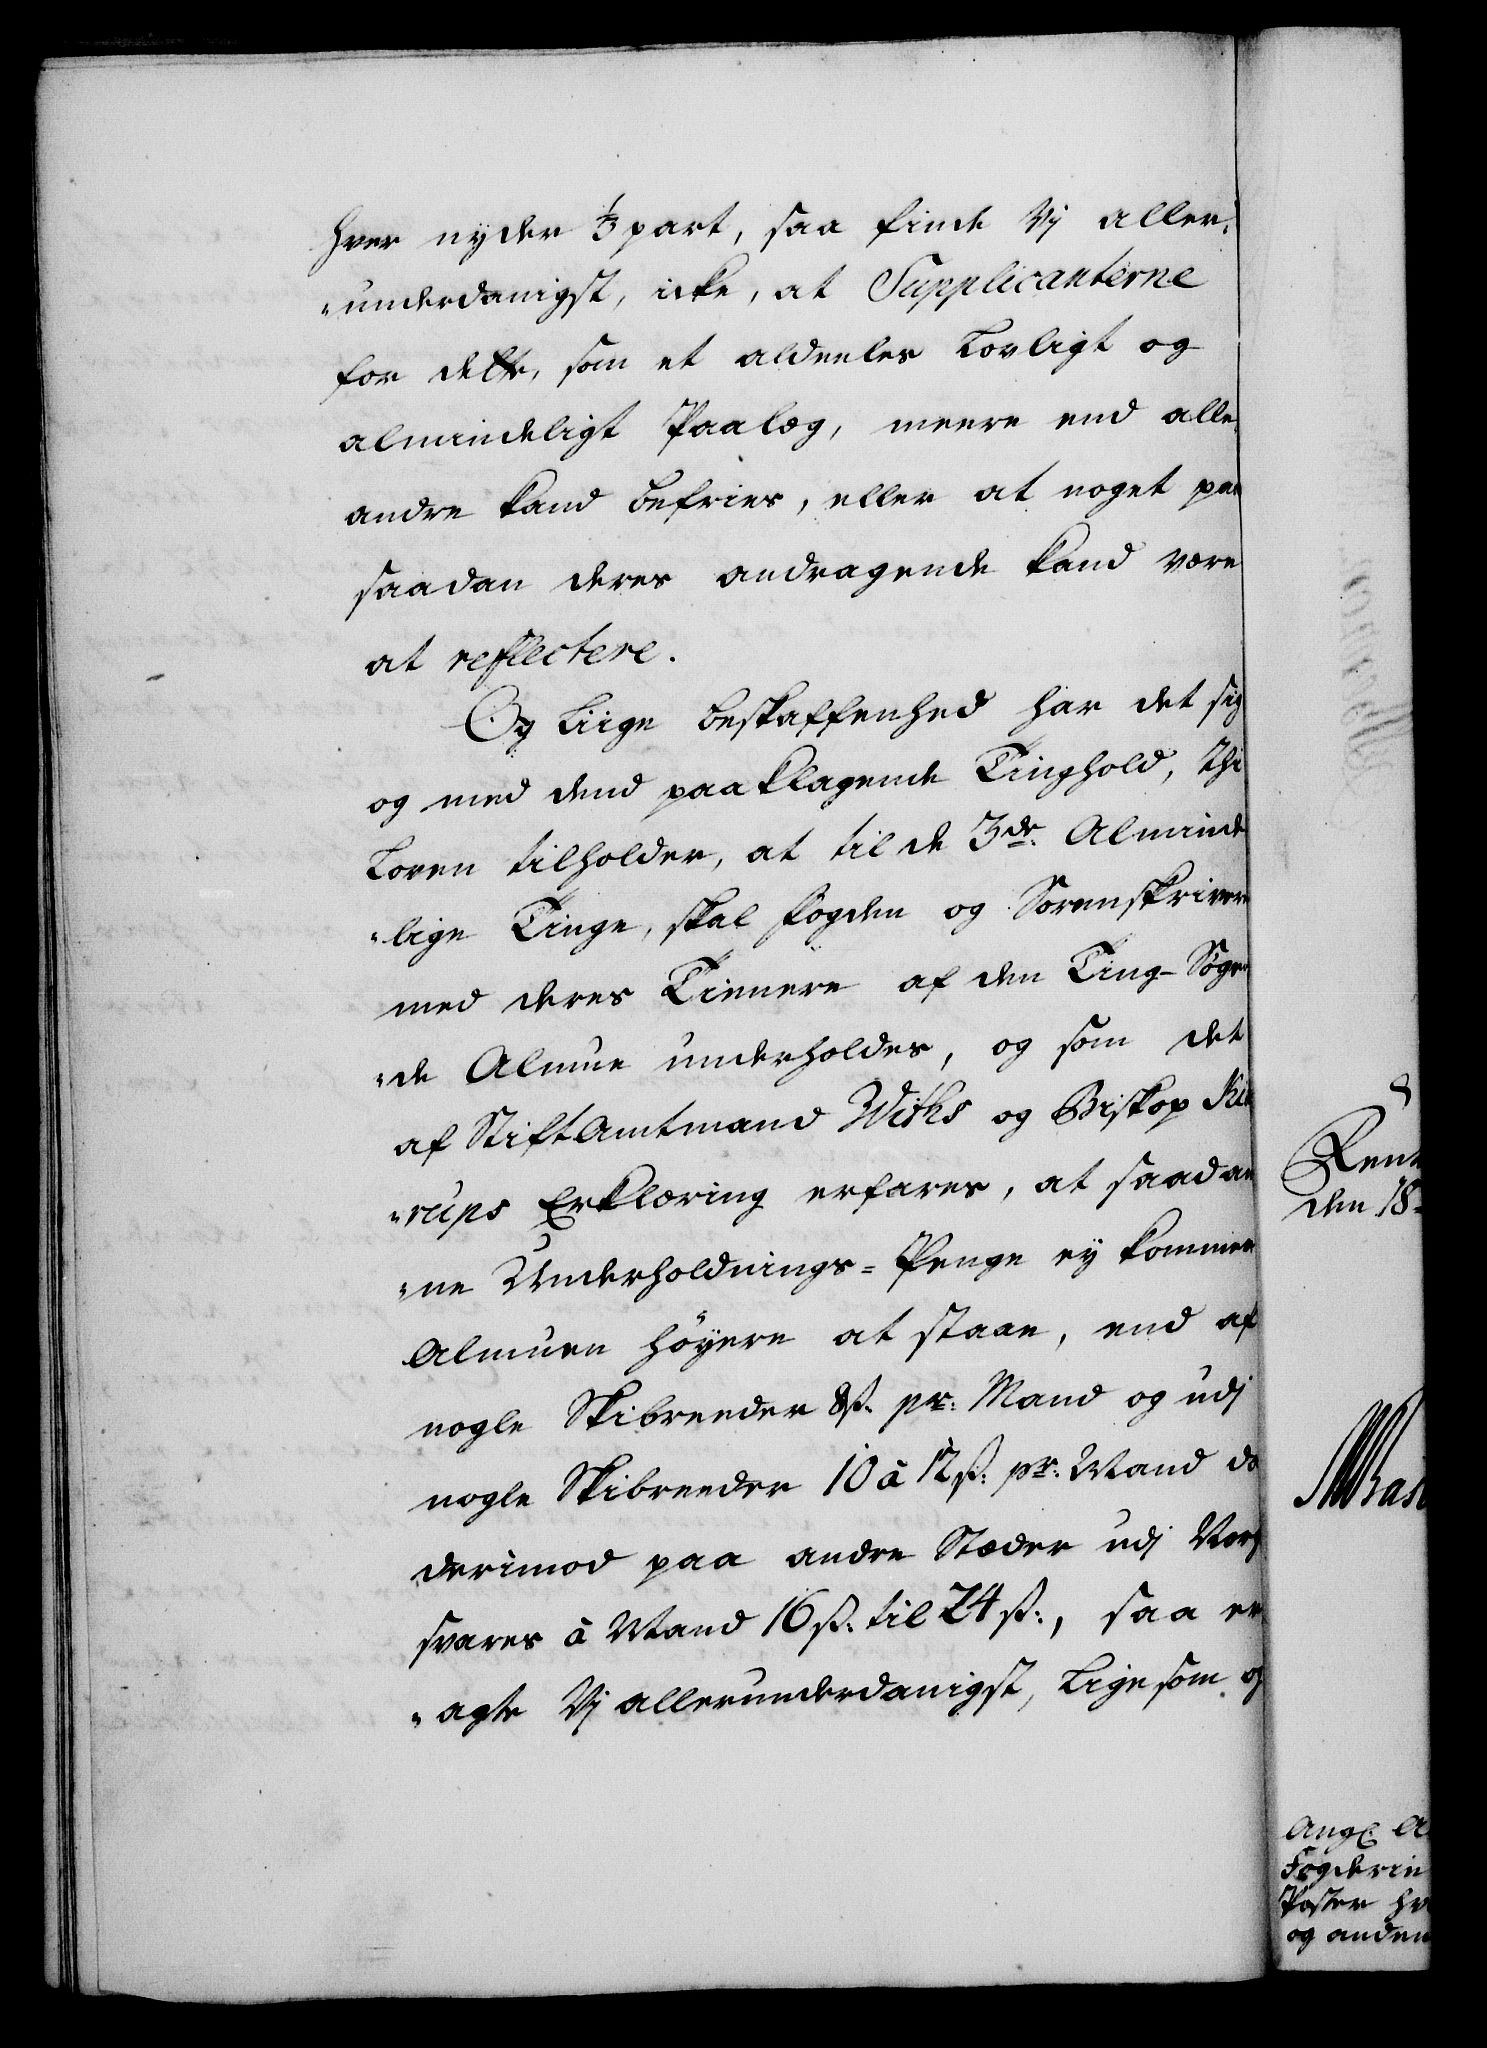 hver nyder 1/3 part, saa finde Vj aller¬
"underdanigst, icke, at Supplicanterne
for dette, som et aldeeles Lovligt og
almindeligt Paalæg, meere end alle
andre kand befries, eller at noget paa
saadan deres andragende kand være
at reflectere.
Og Liige beskaffenhed har det sig
og med dend paaklagende Tinghold, thi
Loven tilholder, at til de 3de: Alminde
"lige Tinge, skal fogden og Sorenskrivere
med deres Tiennere af den Ting-Søgen
"de Almue underholdes, og som det
af Stiftamtmand Withs og Biskop
"rups Erklæring erfares, at saadan
"ne Underholdnings=Penge ey kommer
Almuen höyere at staae, end af
nogle Skibreeder 8 ß. pr: Mand og udj
nogle Skibreeder 10 à 12 ß: pr: Mand da
derimod paa andre Stæder udj
svares à Mand 16 ß: til 24 ß:, saa er
"agte Vj allerunderdanigst, Ligesom og
den 18
Fogderin
Poster
og anden